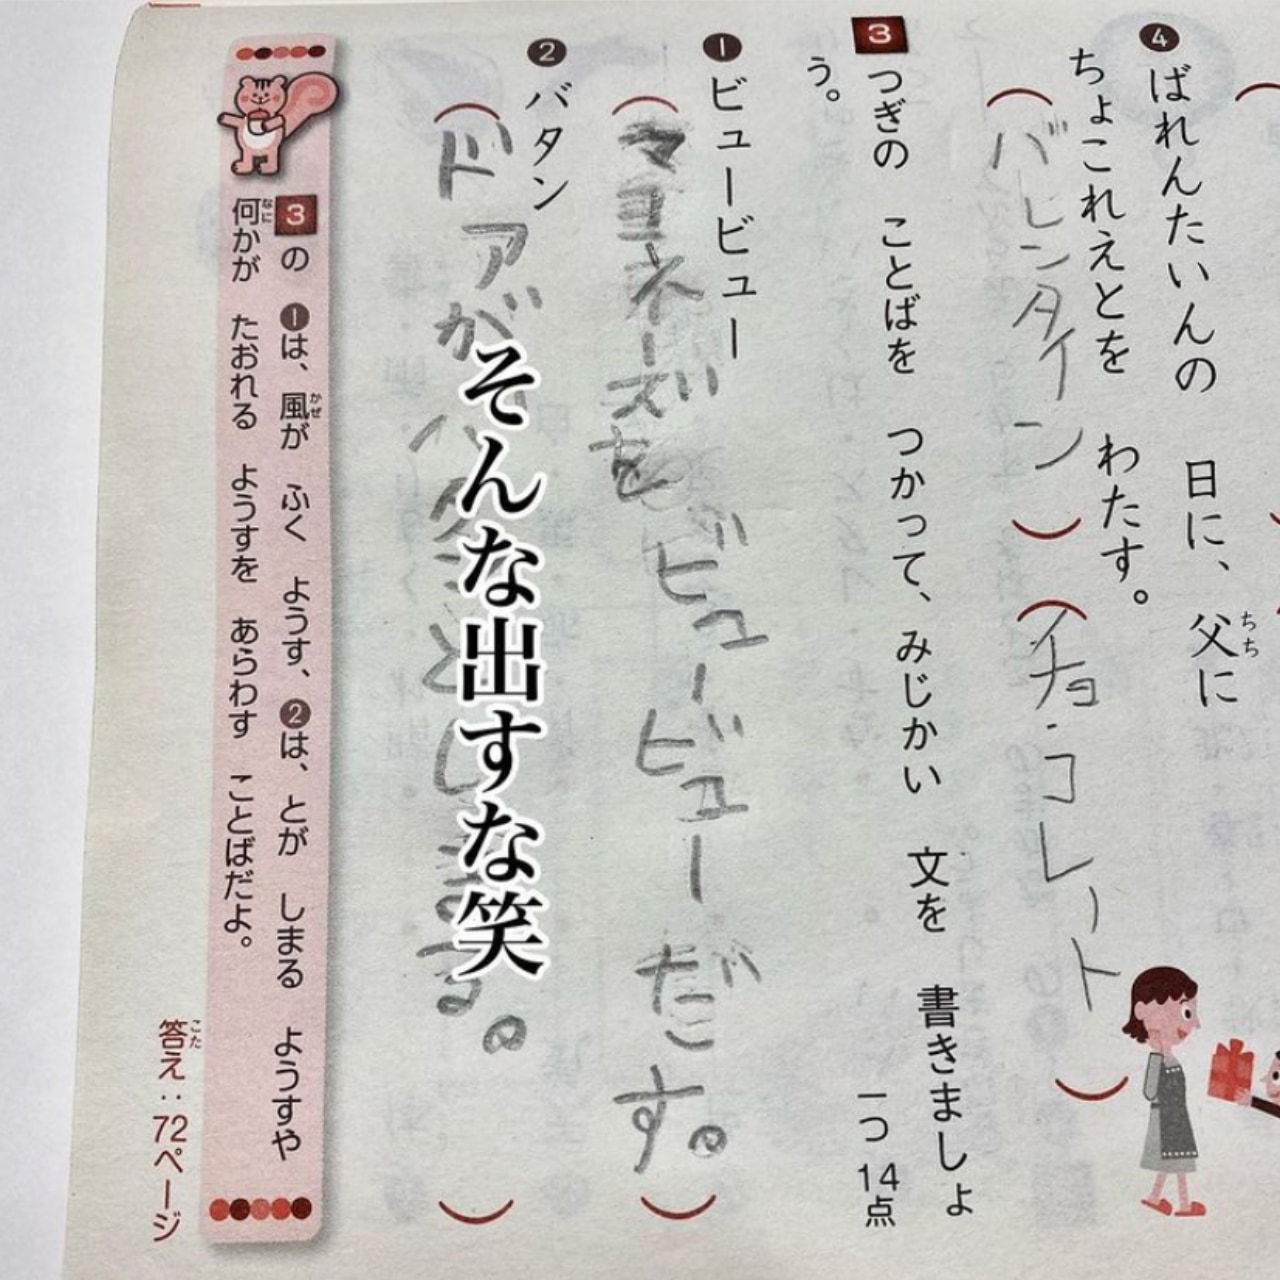 ❹ ばれんたいんの 日に、父に
ちち
ちょこれえとを わたす。
(バレンタイン)(チョコレート)
3 つぎの ことばを つかって、みじかい 文を 書きましょ
う。
一つ 14点
❶ ビュービュー
(マヨネーズをビュービューだす。)
❷ バタン
(ドアがバタンとしまる。)
そんな出すな笑
3の ❶は、風が ふく ようす、❷は、とが しまる ようすや
かぜ
何かが たおれる ようすを あらわす ことばだよ。
なに
答え:72ページ
こた